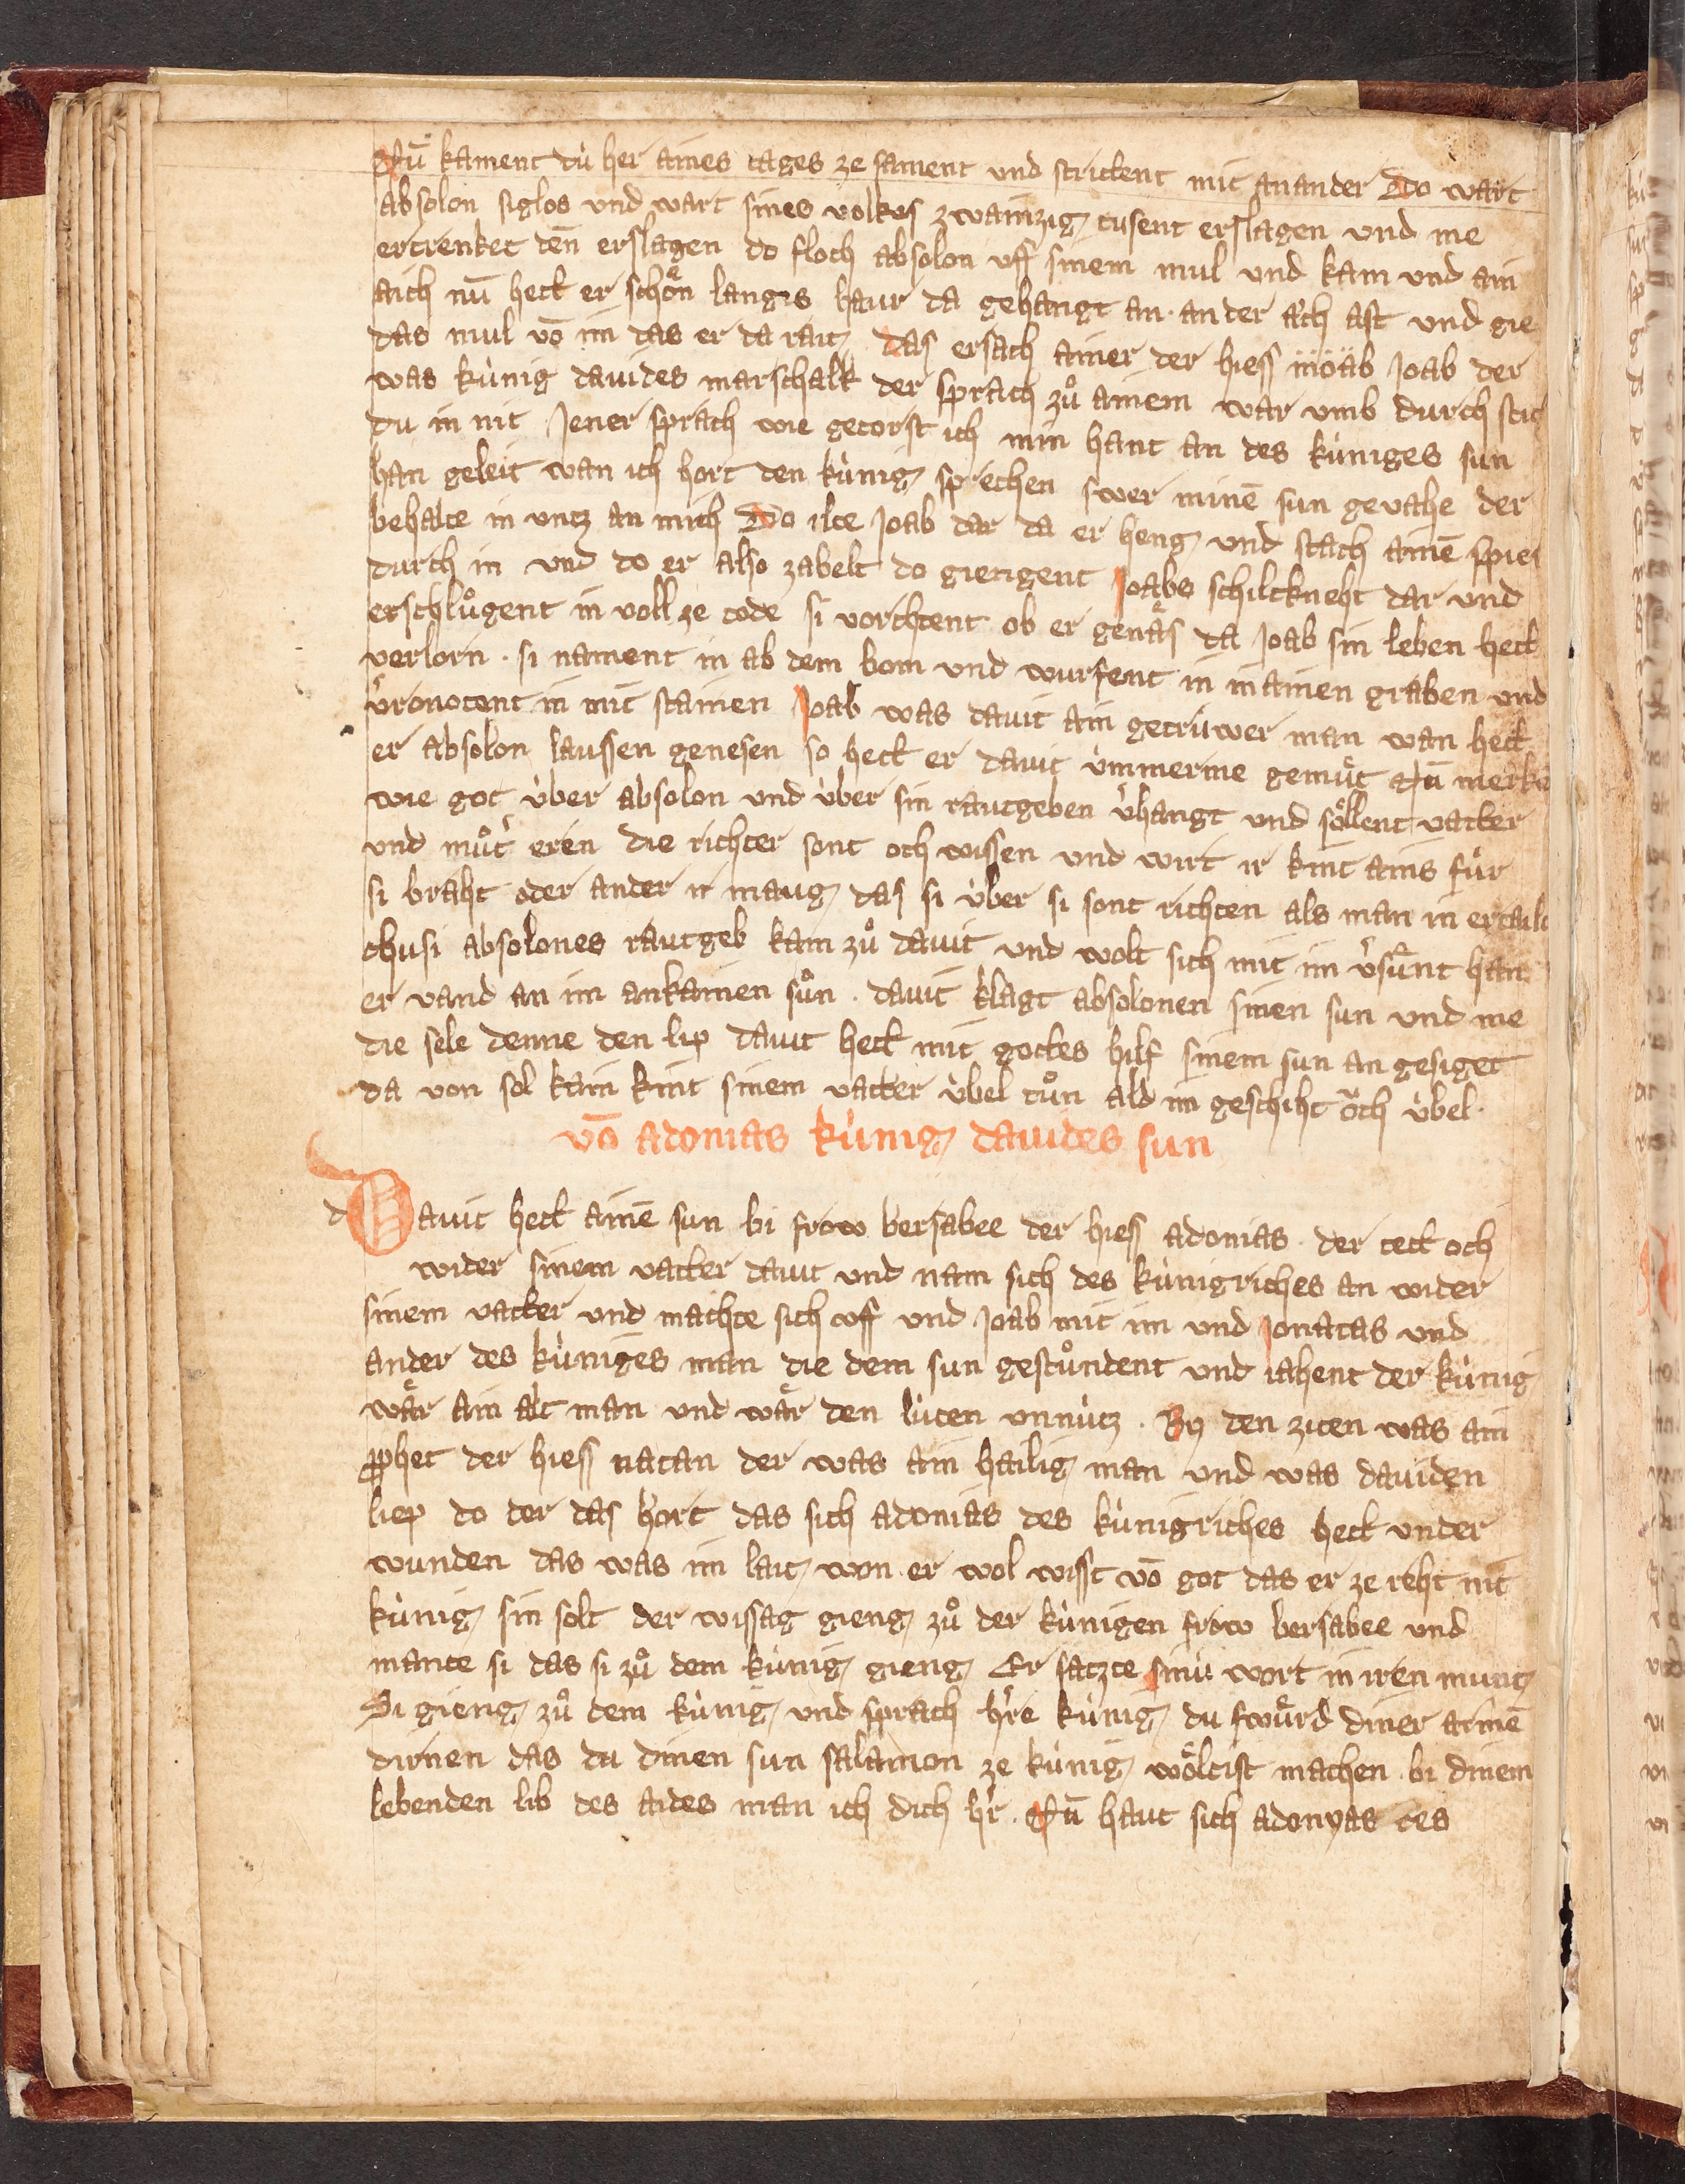 Nū kament dù her aines tages ze sament und strittent mit anander Do wart
absolon siglos und wart sines volkes zwainzig tusent erslagen und me
ertrenket den̄ erslagen do floch absolon vff sinem mul und kam vnd ain
aich nū hett er schön langes haur da gehangt an ander aich ast und gie
das mul vō im das er da rait das ersach ainer der hiess moab Joab der
was kùnig dauides marschalk der sprach zů ainem war vmb durch stich
du in nit Jener sprach wie getorst ich min hant an des kùniges sun
han geleit wan ich hort den kùnig sprechen swer minē sun gevahe der
behalte in vntz an mich Do ilte Joab dar da er heng und stach ainē spies
durch in und do er also zabelt do giengent Joabs schiltkneht dar und
erschlůgent in voll ze tode si vorchtent ob er genäs da Joab sin leben hett
verlorn . si nament in ab dem bom vnd wurfent in in ainen graben und
v̉ronotent in mit stainen Joab was dauit ain getrùwer man wan hett
er absolon laussen genesen so hett er dauit ùmmerme gemùt Nū merkē
wie got ùber absolon und ùber sin rautgeben v̉hangt und söllent vatter
und můt̉ eren die richter sont och wissen und wirt ir kint ains fùr
si braht oder ander ir maug das si ùber si sont richten als man in ertailt
chusi absolones rautgeb kam zů dauit und wolt sich mit im v̉sùnt han
er vand an im enkainen sůn . dauit klagt absolonen sinen sun und me
die sele denne den lip dauit hett mit gottes hilf sinem sun an gesiget
da von sol kain kint sinem vatter ùbel tůn ald im geschiht öch ùbel.
vō adonias kùnig dauides sun
d Dauit hett ainē sun bi frow bersabee der hiess adonias . der tett och
wider sinem vatter dauit und nam sich des kùnigriches an wider
sinem vatter und machte sich vff und Joab mit im und Jonatas und
ander des kùniges man die dem sun gestůndent und iahent der kùnig
wär ain alt man und wär den lùten vnnùtz . By den ziten was ain
prophet der hiess natan der was ain hailig man und was dauiden
liep do der das hort das sich adonias des kùnigriches hett under
wunden das was im lait won er wol wisst vō got das er ze reht nit
kùnig sin solt der wissag gieng zů der kùnigen frow bersabee und
mante si das si zů dem kùnig gieng Er satzte sinù wort in iren munt
Si gieng zů dem kùnig und sprach hr̉e kùnig du swùrd diner armē
dirnen das du dinen sun salamon ze kùnig wöltist machen bi dinem
lebenden lib des aides man ich dich hr̉ . Nū haut sich adonyas des